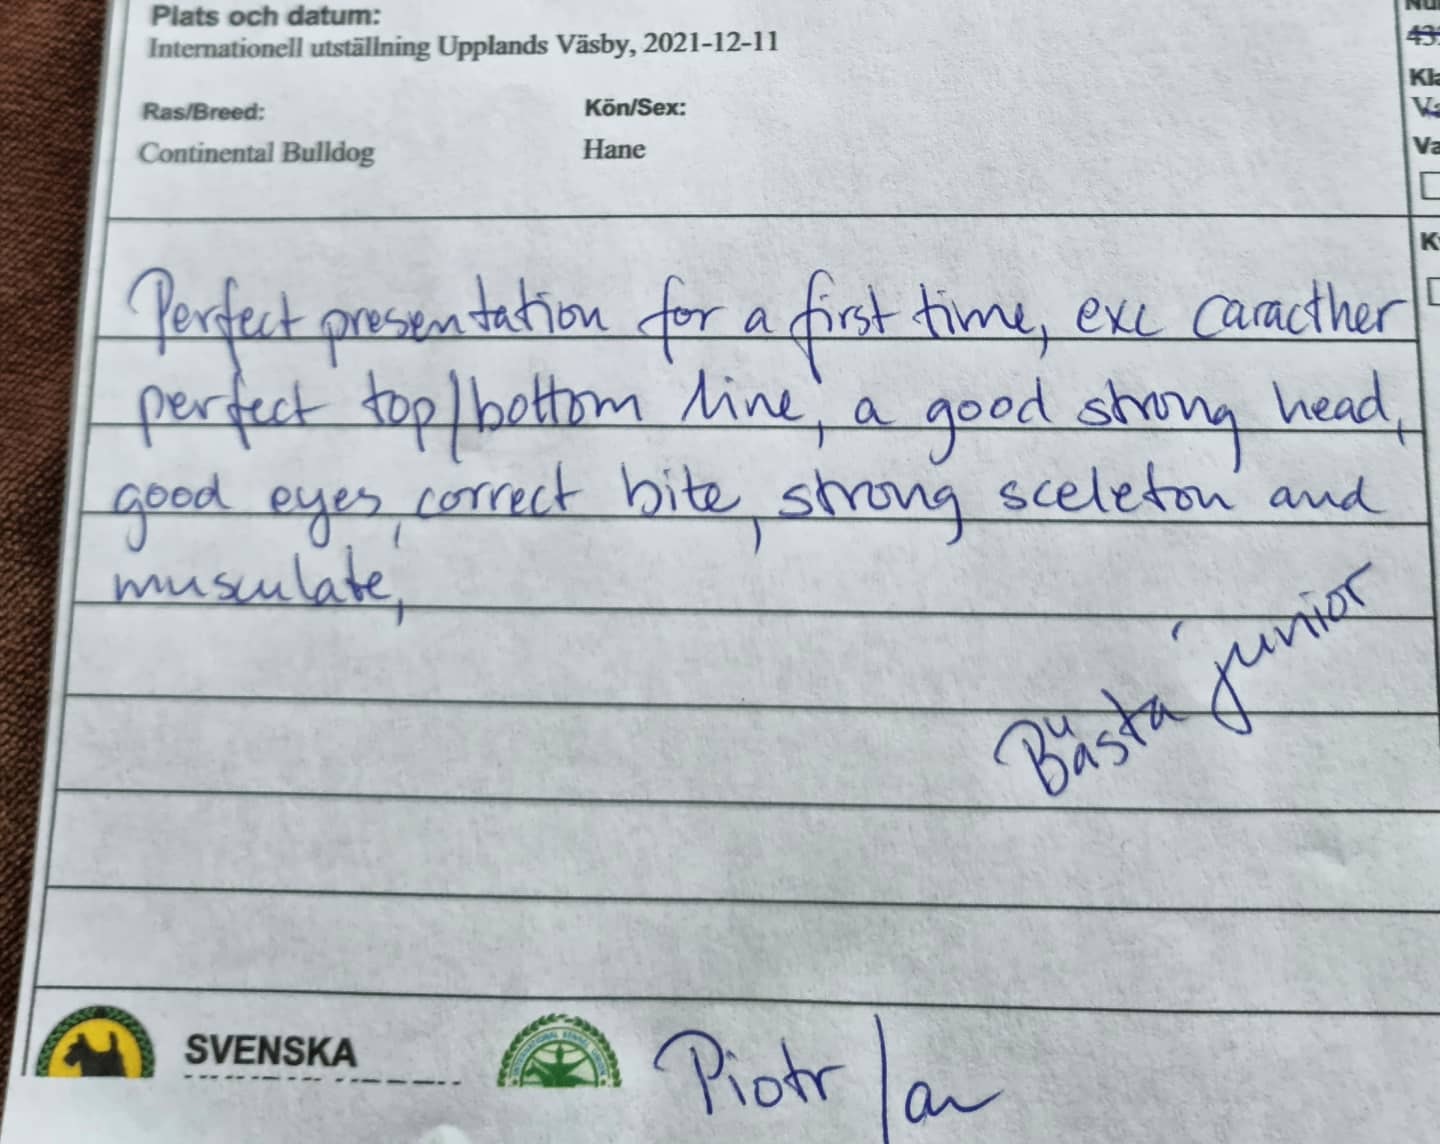 Plats och datum:
Internationell utställning Upplands Väsby, 2021-12-11
Ras/Breed:
Continental Bulldog
Kön/Sex:
Hane
Perfect presentation for a first time, exc caracther
perfect top/bottom line, a good strong head,
good eyes, correct bite, strong sceleton and
musculate,
Bästa junior
SVENSKA
INTERNATIONAL KENNEL UNION
Piotr/an